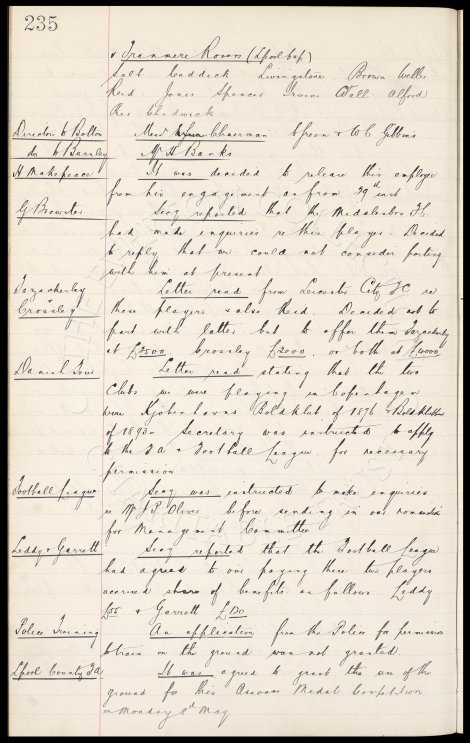 235
v Tranmere Rovers (Lpool Cup)
Salt Caddick Livingstone Brown Weller
Reid Jones Spencer Irvine Wall Alford
Res Chadwick
Director to Bolton Messrs Chairman Green & W C Gibbins
do to Barnsley Mr H Banks
H Makepeace It was decided to release this employee
from his engagement as from 29th inst
G Brewster Secy reported that the Middlesbro FC
had made enquiries re this player. Decided
to reply that we could not consider parting
with him at present
Fazackerley Letter read from Leicester City FC re
& Crossley these players & also Reid. Decided not to
part with latter but to offer them Fazackerley
at £2500, Crossley £2000, or both at £4000
Danish Tour Letter read stating that the two
Clubs we were playing in Copenhagen
were Kjobenhavns Boldklub of 1876 & Boldklubben
of 1893. Secretary was instructed to apply
to the FA & Football League for necessary
permission
Football League Secy was instructed to make enquiries
re Mr Oliver before sending in our nomination
for Management Committee
Leddy & Garrett Secy reported that the Football League
had agreed to our paying these two players
accrued share of benefits as follows Leddy
& Garrett £130
Police Training An application from the Police for permission
to train on the ground was not granted.
Lpool County FA It was agreed to grant the use of the
ground for this Assocn Medal Competition
on Monday May